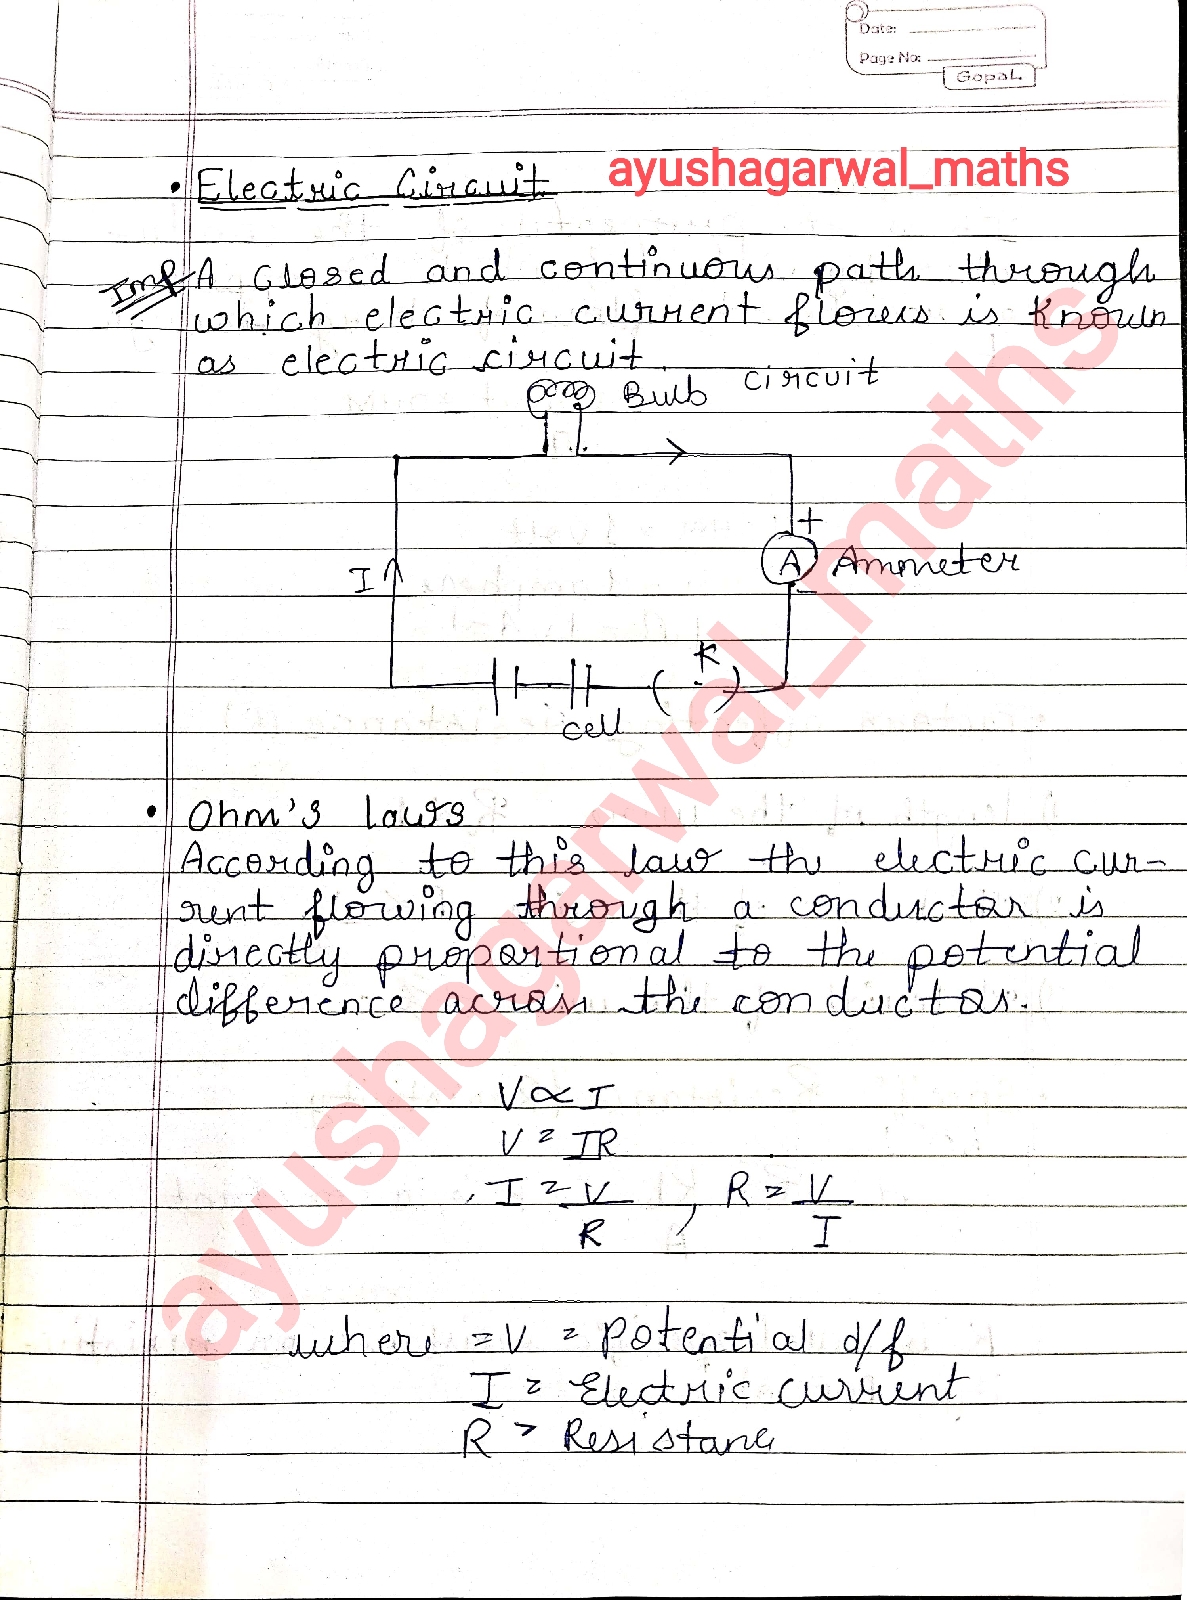 Date:
Page No:
Gopal
ayushagarwal_maths
• Electric Circuit
Imp A closed and continuous path through
which electric current flows is known
as electric circuit.
Bulb circuit
+
I
A Ammeter
-
K
cell
• Ohm's laws
According to this law the electric cur-
rent flowing through a conductor is
directly proportional to the potential
difference across the conductor.
V ∝ I
V = IR
I = V/R , R = V/I
where = V = Potential d/f
I = Electric current
R = Resistance
ayushagarwal_maths